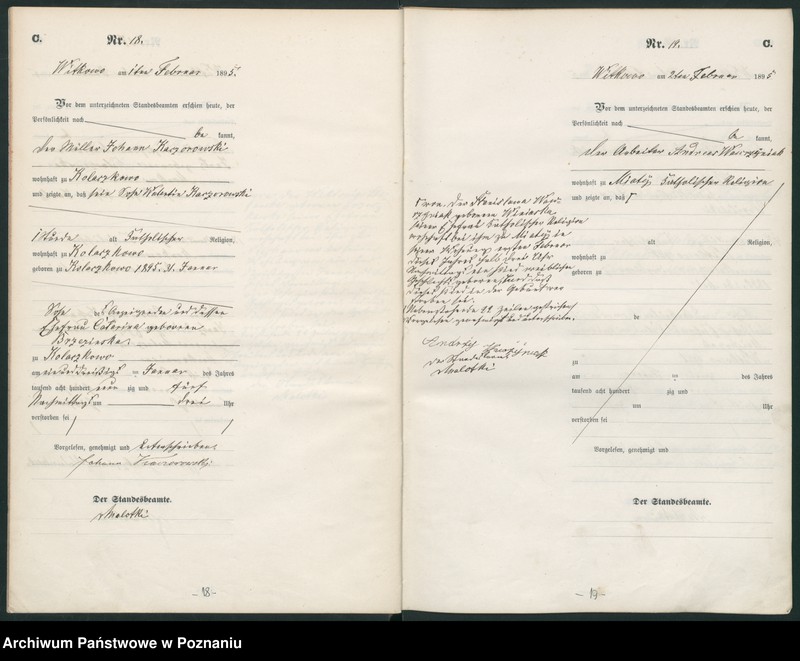 C. Nr. 18.
Witkowo am 1ten Februar 1895.
Vor dem unterzeichneten Standesbeamten erschien heute, der
Persönlichkeit nach
be kannt,
der Müller Johann Kaczorowski
wohnhaft zu Kolaczkowo
und zeigte an, daß sein Sohn Valentin Kaczorowski
1 Stunde alt katholischer Religion,
wohnhaft zu Kolaczkowo
geboren zu Kolaczkowo 1895. 31. Januar
Sohn des Anzeigenden und dessen
Ehefrau Catarina geborenen
Brzezinska
zu Kolaczkowo
am ein und dreißigs ten Januar des Jahres
tausend acht hundert neun zig und fünf
Nachmittags um drei Uhr
verstorben sei
Vorgelesen, genehmigt und unterschrieben.
Johann Kaczorowski
Der Standesbeamte.
Malotki
-18-
Nr. 19. C.
Witkowo am 2ten Februar 1895
Vor dem unterzeichneten Standesbeamten erschien heute, der
Persönlichkeit nach
be kannt,
der Arbeiter Andreas
wohnhaft zu Mielzyn katholischer Religion
und zeigte an, daß
von der Stanislawa
geborenen Winiarska
seiner Ehefrau katholischer Religion
wohnhaft bei ihm zu in
seiner Wohnung ersten Februar
dieses Jahres halb drei Uhr
Nachmittags ein Kind weiblichen
Geschlechts geboren und daß
dieses Kind in der Geburt ver
storben sei.
Nebenstehende 22 Zeilen gestrichen
Vorgelesen genehmigt und unterschrieben.
Andrzej
Der Standesbeamte
Malotki
alt Religion,
wohnhaft zu
geboren zu
de
zu
am ten des Jahres
tausend acht hundert zig und
um Uhr
verstorben sei
Vorgelesen, genehmigt und
Der Standesbeamte.
-19-
Archiwum Państwowe w Poznaniu